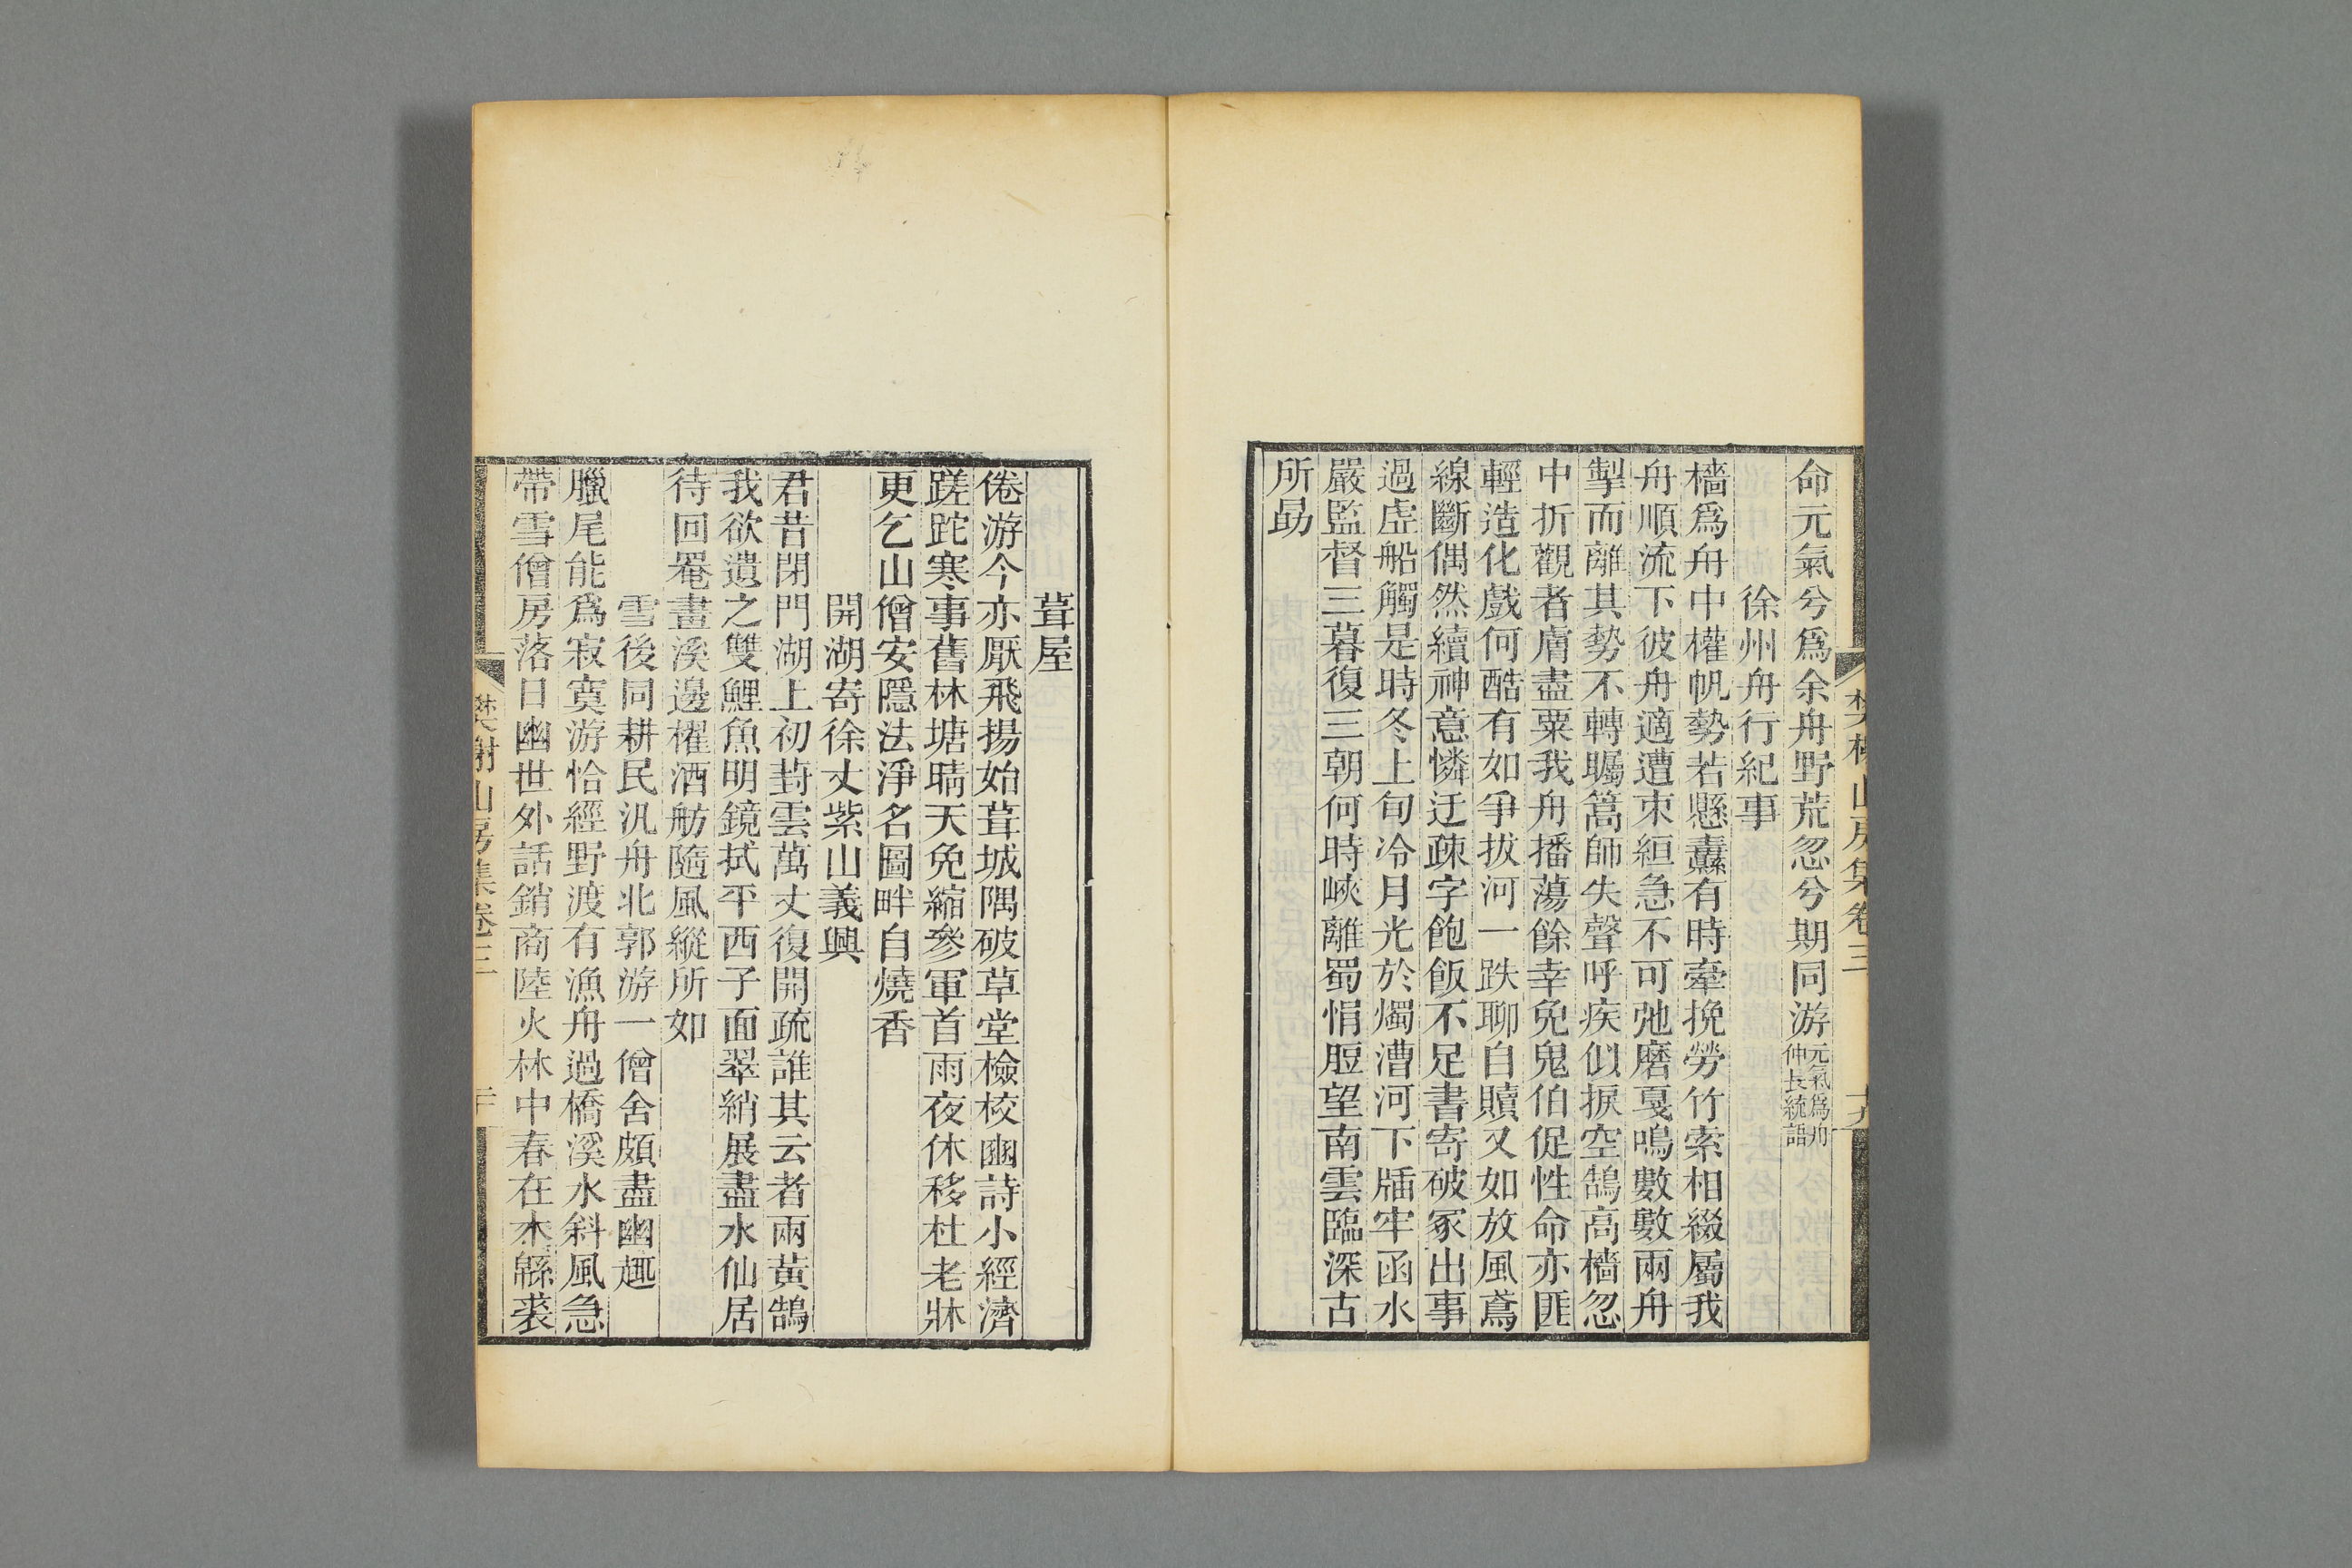 樊榭山房集卷三
十九
命元氣兮爲余舟野荒忽兮期同游元氣爲舟仲長統語
徐州舟行紀事
檣爲舟中權帆勢若懸纛有時牽挽勞竹索相綴屬我
舟順流下彼舟適遭束絙急不可弛磨戛鳴數數兩舟
掣而離其勢不轉矚篙師失聲呼疾似捩空鵠高檣忽
中折觀者膚盡粟我舟播蕩餘幸免鬼伯促性命亦匪
輕造化戲何酷有如爭拔河一跌聊自贖又如放風鳶
線斷偶然續神意憐迂疎字飽飯不足書寄破冢出事
過虛船觸是時冬上旬冷月光於燭漕河下牐牢函水
嚴監督三暮復三朝何時峽離蜀悁脰望南雲臨深古
所勗
葺屋
倦游今亦厭飛揚始葺城隅破草堂檢校幽詩小經濟
蹉跎寒事舊林塘晴天免縮參軍首雨夜休移杜老牀
更乞山僧安隱法淨名圖畔自燒香
開湖寄徐丈紫山義興
君昔閉門湖上初葑雲萬丈復開疏誰其云者兩黃鵠
我欲遺之雙鯉魚明鏡拭平西子面翠綃展盡水仙居
待回罨畫溪邊櫂酒舫隨風縱所如
雪後同耕民汎舟北郭游一僧舍頗盡幽趣
臘尾能爲寂寞游恰經野渡有漁舟過橋溪水斜風急
帶雪僧房落日幽世外話銷商陸火林中春在木緜裘
樊榭山房集卷三
二十